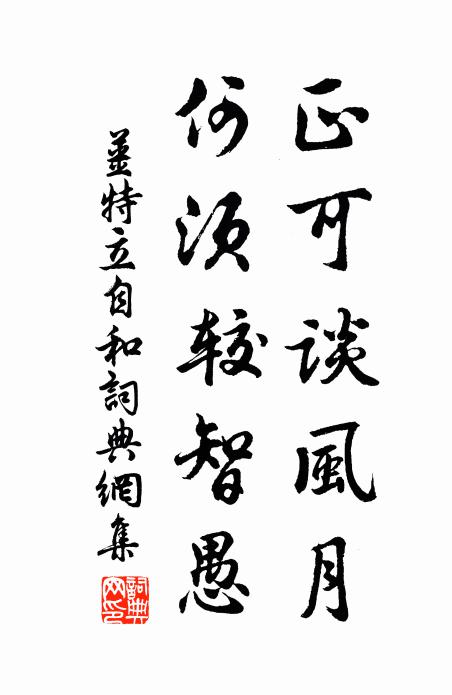 正可談風月
何須較智愚
姜特立自和詞典網集
詞典网印